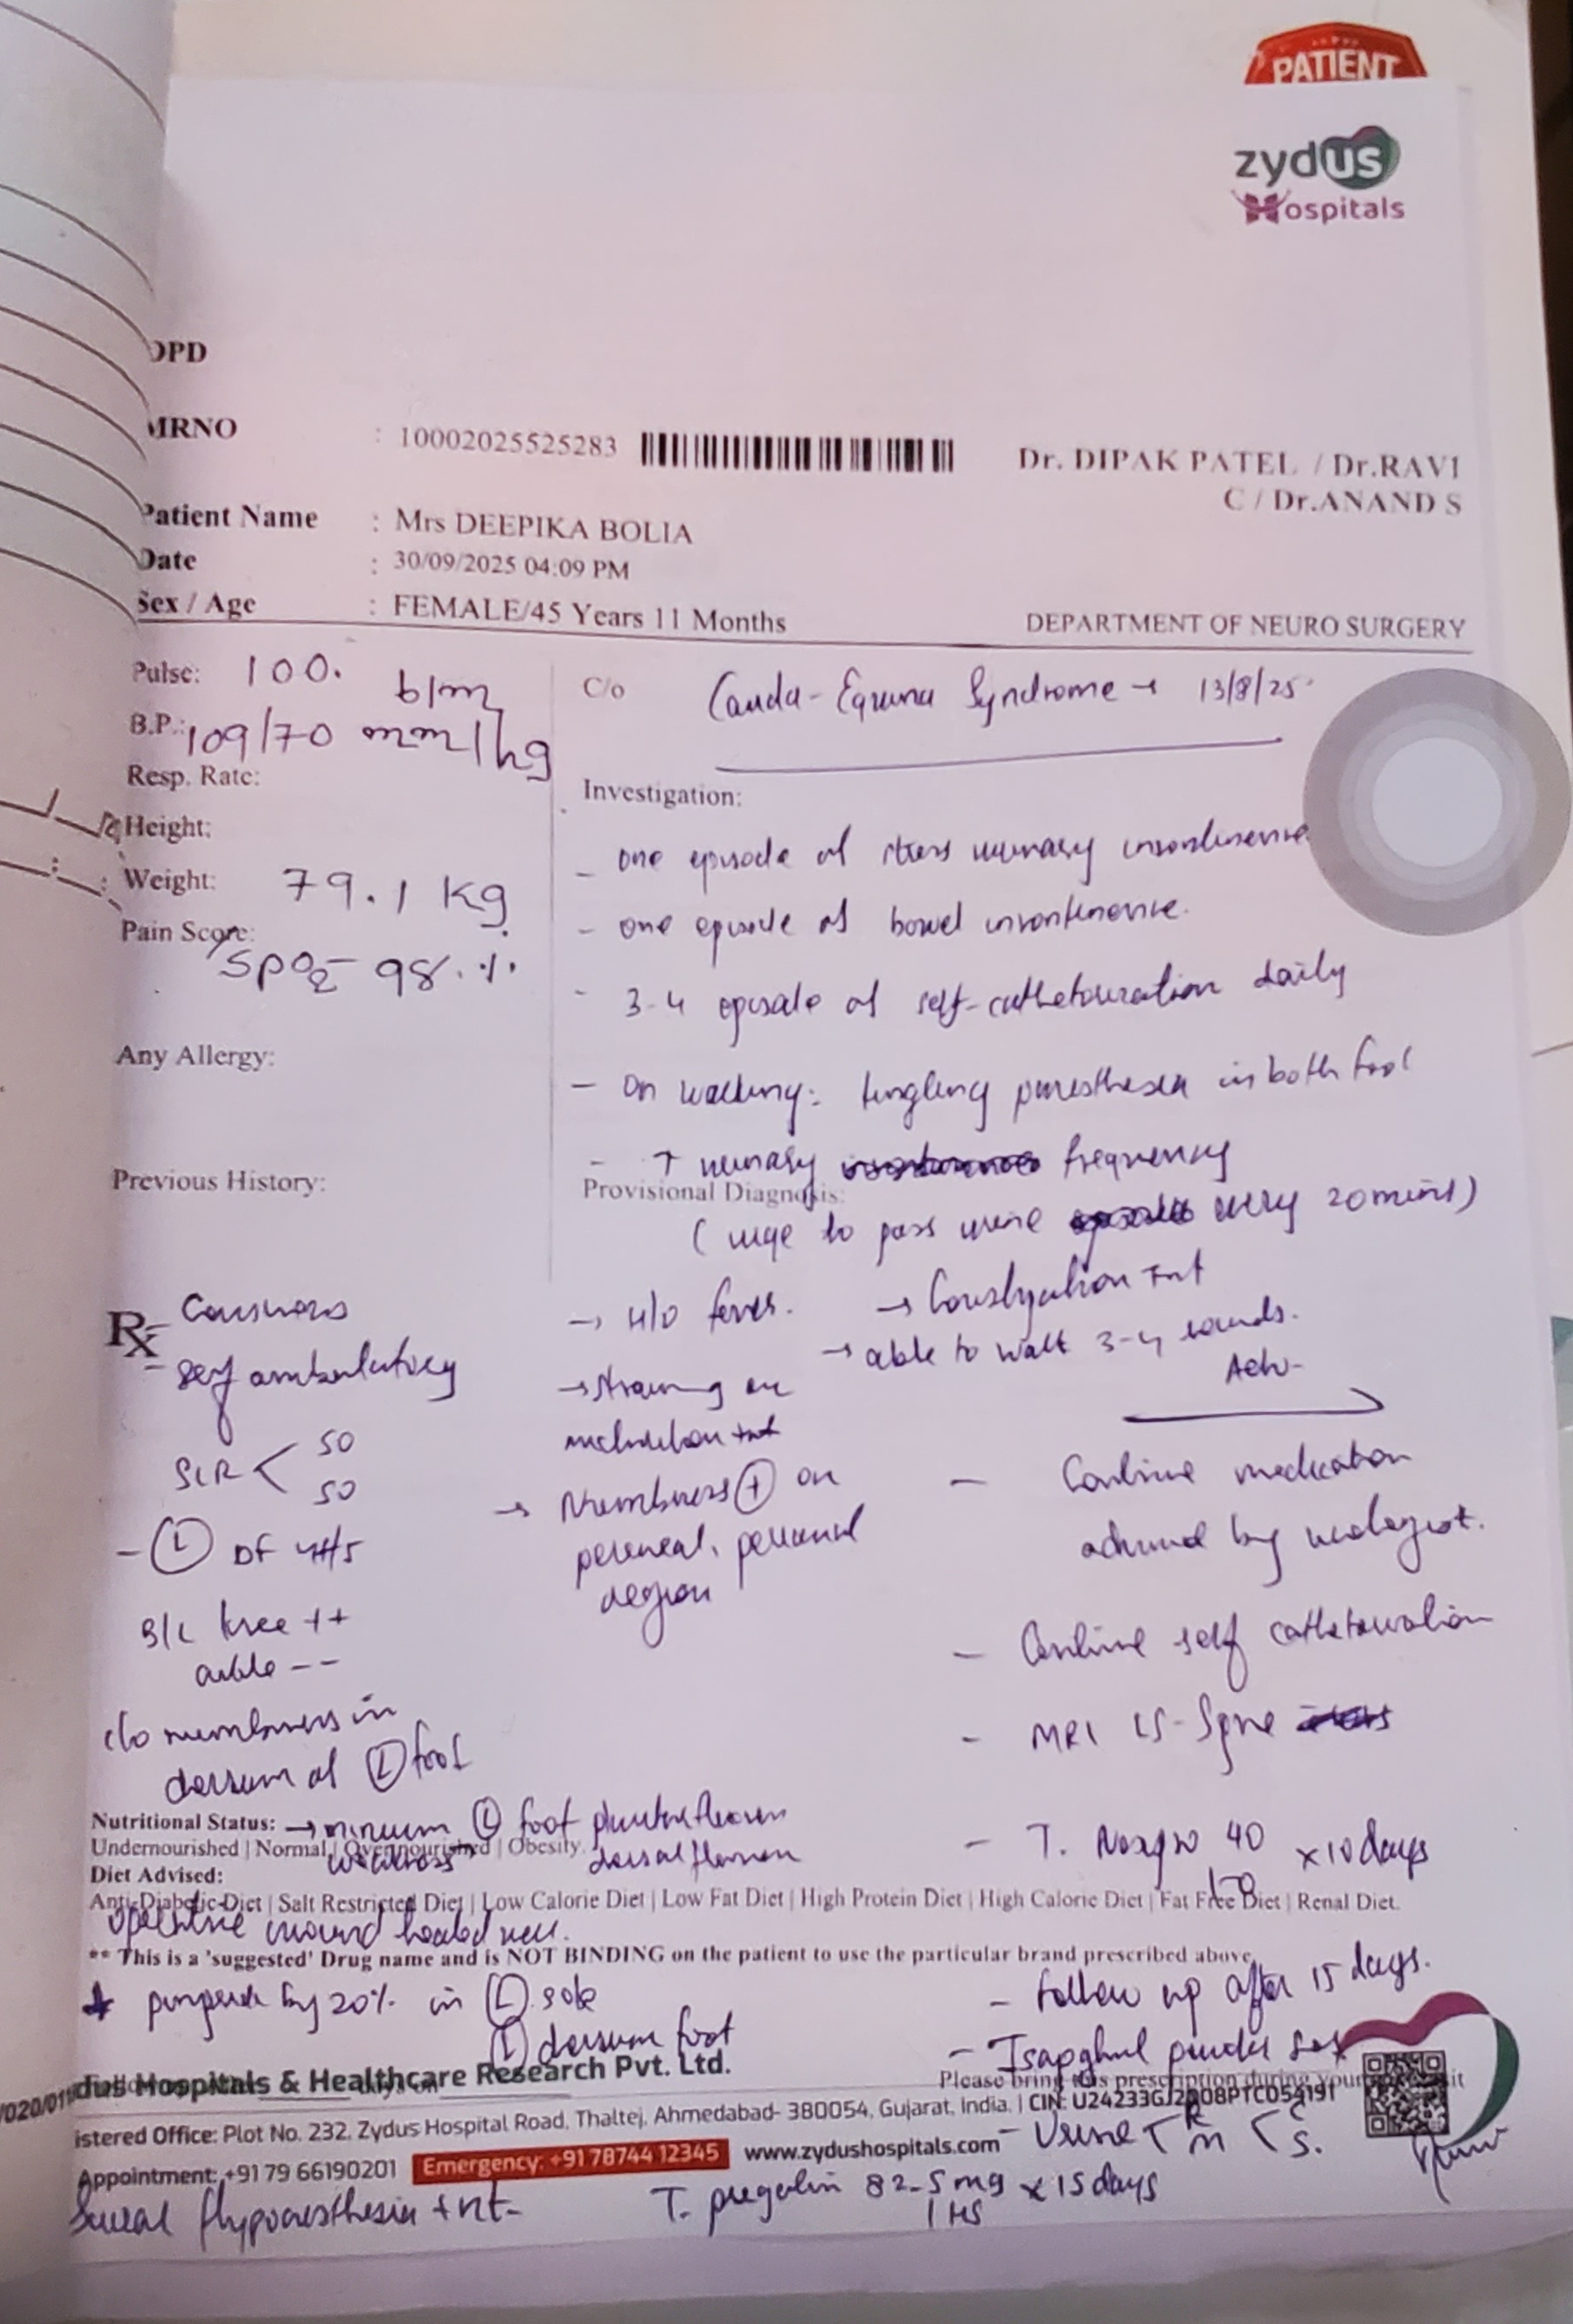 PATIENT
zydus
Hospitals
OPD
MRNO : 10002025525283
Dr. DIPAK PATEL / Dr.RAVI
C / Dr.ANAND S
Patient Name : Mrs DEEPIKA BOLIA
Date : 30/09/2025 04:09 PM
Sex / Age : FEMALE/45 Years 11 Months
DEPARTMENT OF NEURO SURGERY
Pulse: 100. b/m
B.P.: 109/70 mm/hg
Resp. Rate:
Height:
Weight: 79.1 Kg
Pain Score:
SPO2- 98.%.
Any Allergy:
Previous History:
C/o Cauda-Equina Syndrome → 13/8/25
Investigation:
- one episode of stress urinary incontinence
- one episode of bowel incontinence.
- 3-4 episode of self-catheterization daily
- On walking: tingling paresthesia in both foot
- ↑ urinary frequency
Provisional Diagnosis:
(urge to pass urine every 20 mins)
Rx
- Conscious
- self ambulatory
SLR < 50
50
- (L) DF 4/5
B/L knee ++
ankle --
c/o numbness in
dorsum of (L) foot
→ H/o fever.
→ straining on
micturition +nt
→ Numbness (+) on
perineal, perianal
region
→ Constipation +nt
→ able to walk 3-4 rounds.
Adv-
- Continue medication
advised by urologist.
- Continue self catheterization
- MRI LS-Spine
- T. 40 x 10 days
Nutritional Status: → (L) foot plantarflexion
Undernourished | Normal | Overnourished | Obesity.
weakness dorsalflexion
Diet Advised:
Anti-Diabetic-Diet | Salt Restricted Diet | Low Calorie Diet | Low Fat Diet | High Protein Diet | High Calorie Diet | Fat Free Diet | Renal Diet.
operative wound healed well.
** This is a 'suggested' Drug name and is NOT BINDING on the patient to use the particular brand prescribed above
by 20% in (L) sole
(L) dorsum foot
- follow up after 15 days.
- Isapghul powder
dus Hospitals & Healthcare Research Pvt. Ltd.
Please bring this prescription during your
istered Office: Plot No. 232, Zydus Hospital Road, Thaltej, Ahmedabad- 380054, Gujarat, India. | CIN: U24233GJ2008PTC054191
Appointment: +91 79 66190201 Emergency: +91 78744 12345 www.zydushospitals.com
- Urine
Hypoaesthesia +nt-
T. pregalin 82.5 mg x 15 days
1 HS